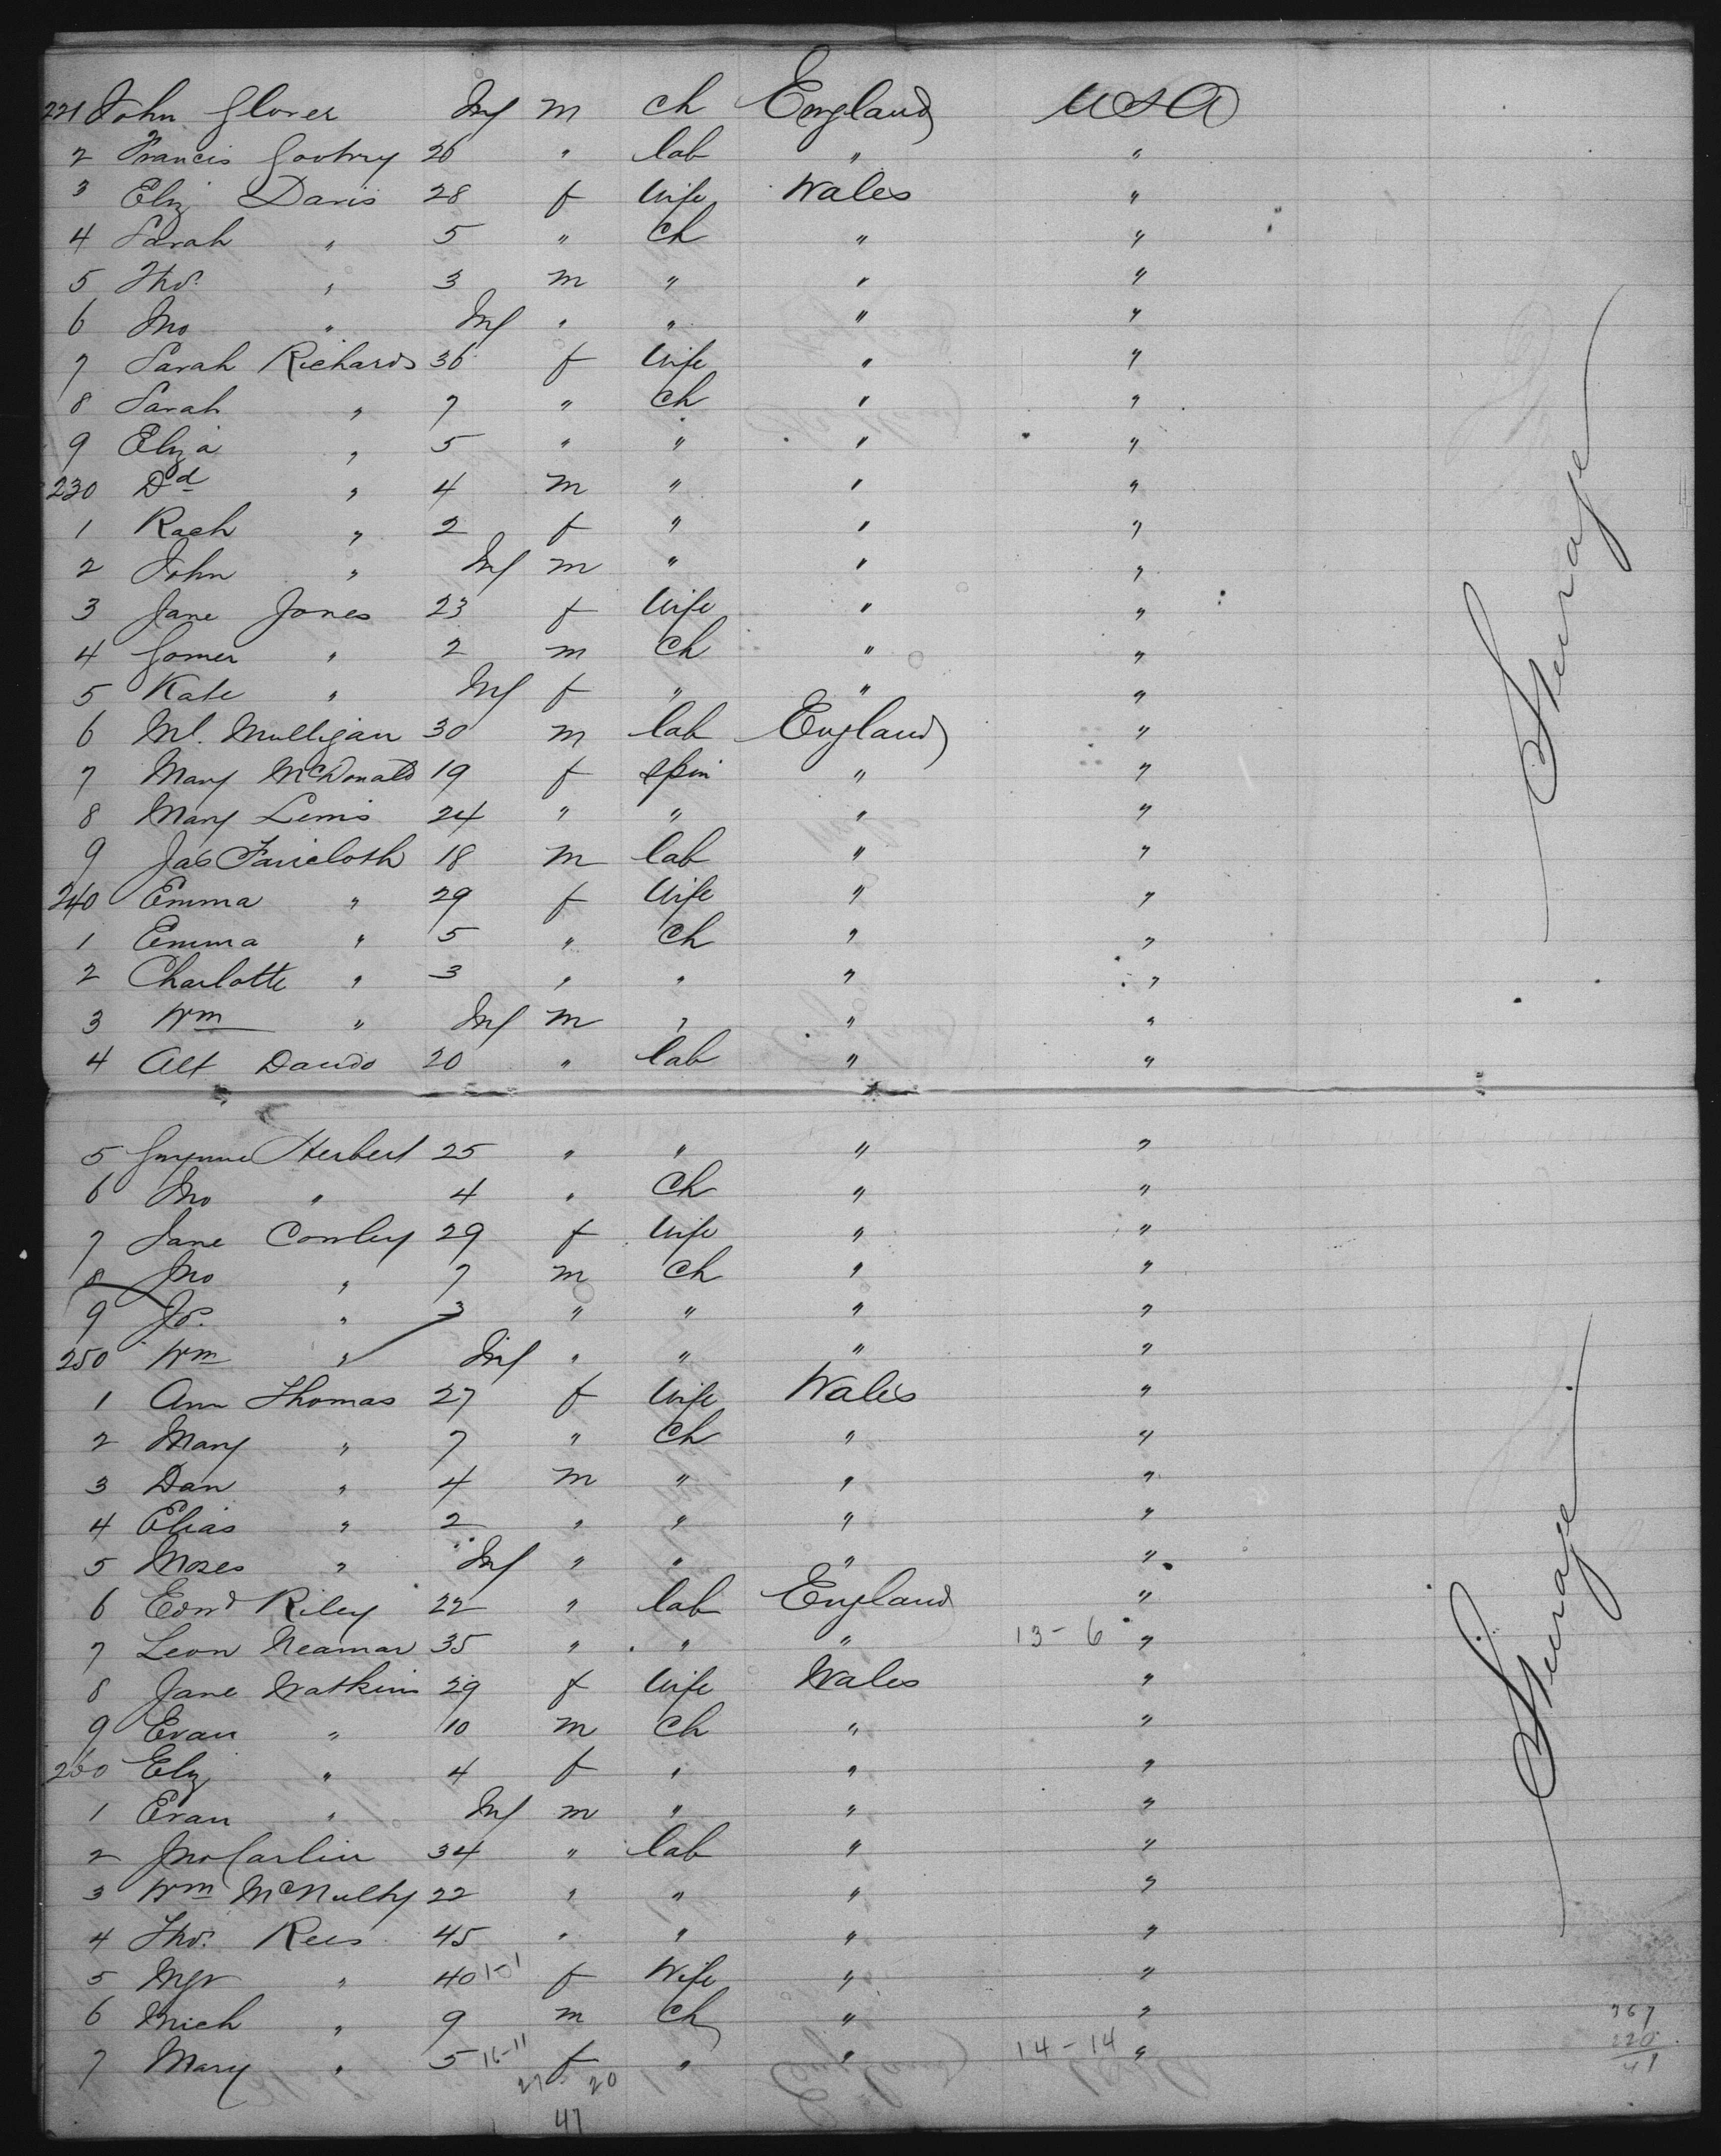 221 John Glover Inf m ch England USA
2 Francis Gootry 26 " lab " "
3 Eliz Davis 28 f Wife Wales "
4 Sarah " 5 " Ch " "
5 Thos. " 3 m " " "
6 Jno " Inf " " " "
7 Sarah Richards 36 f Wife " "
8 Sarah " 7 " Ch " "
9 Eliza " 5 " " " "
230 Dd " 4 m " " "
1 Rach " 2 f " " "
2 John " Inf m " " "
3 Jane Jones 23 f Wife " "
4 Gomer " 2 m Ch " "
5 Kate " Inf f " " "
6 Ml. Mulligan 30 m lab England "
7 Mary McDonald 19 f spin " "
8 Mary Lewis 24 " " " "
9 Jas Faircloth 18 m lab " "
240 Emma " 29 f Wife " "
1 Emma " 5 " Ch " "
2 Charlotte " 3 " " " "
3 Wm " Inf m " " "
4 Alf Dando 20 " lab " "
5 Gwynne Herbert 25 " " " "
6 Jno " 4 " Ch " "
7 Jane Cowley 29 f Wife " "
8 Jno " 7 m Ch " "
9 Js. " 3 " " " "
250 Wm " Inf " " " "
1 Ann Thomas 27 f Wife Wales "
2 Mary " 7 " Ch " "
3 Dan " 4 m " " "
4 Elias " 2 " " " "
5 Moses " Inf " " " "
6 Edwd Riley 22 " lab England "
7 Leon Neamar 35 " " " 13-6 "
8 Jane Watkins 29 f Wife Wales "
9 Evan " 10 m Ch " "
260 Eliz " 4 f " " "
1 Evan " Inf m " " "
2 Jno Carlin 34 " lab " "
3 Wm McNulty 22 " " " "
4 Thos. Rees 45 " " " "
5 Mgr " 40 f Wife " "
6 Mich " 9 m Ch " "
7 Mary " 5 16-11 f " " 14-14 "
27 20
47
Steerage
Steerage
267
220